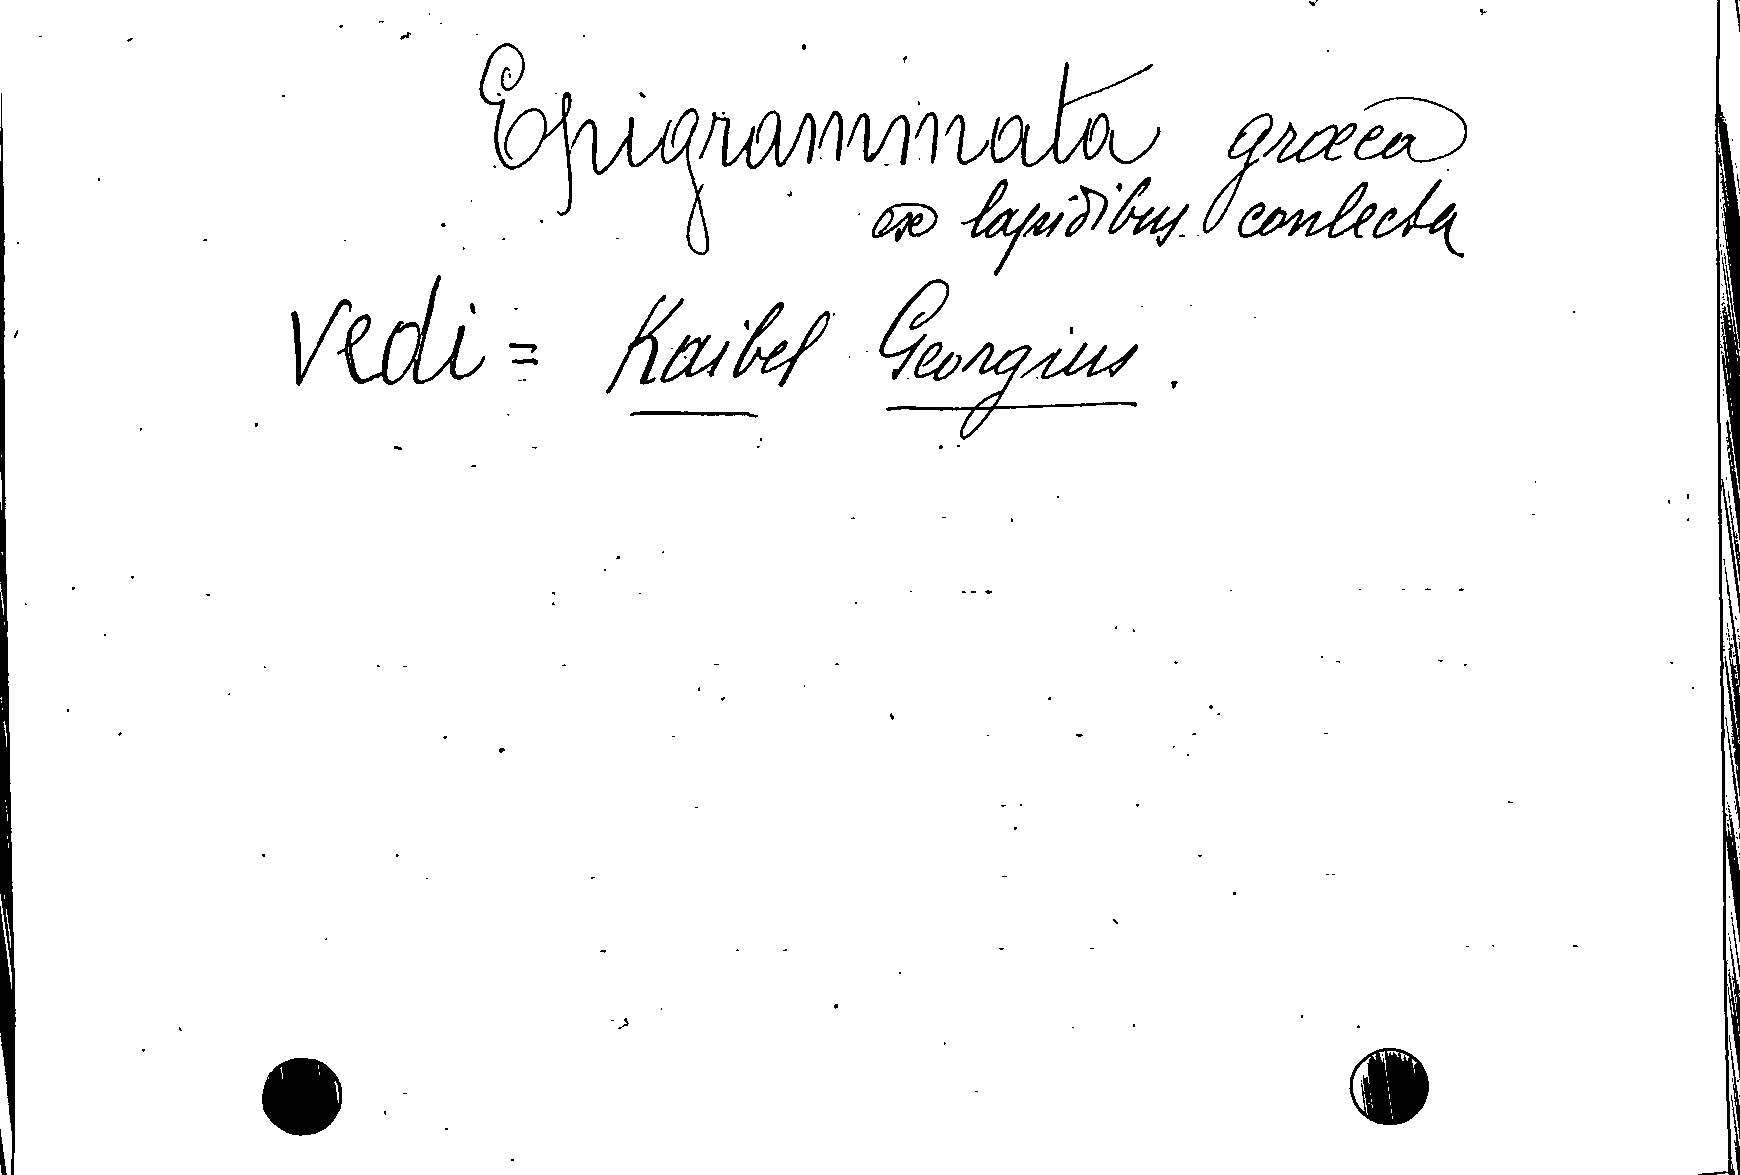 Epigrammata græca
ex lapidibus conlecta
Vedi = Kaibel Georgius.